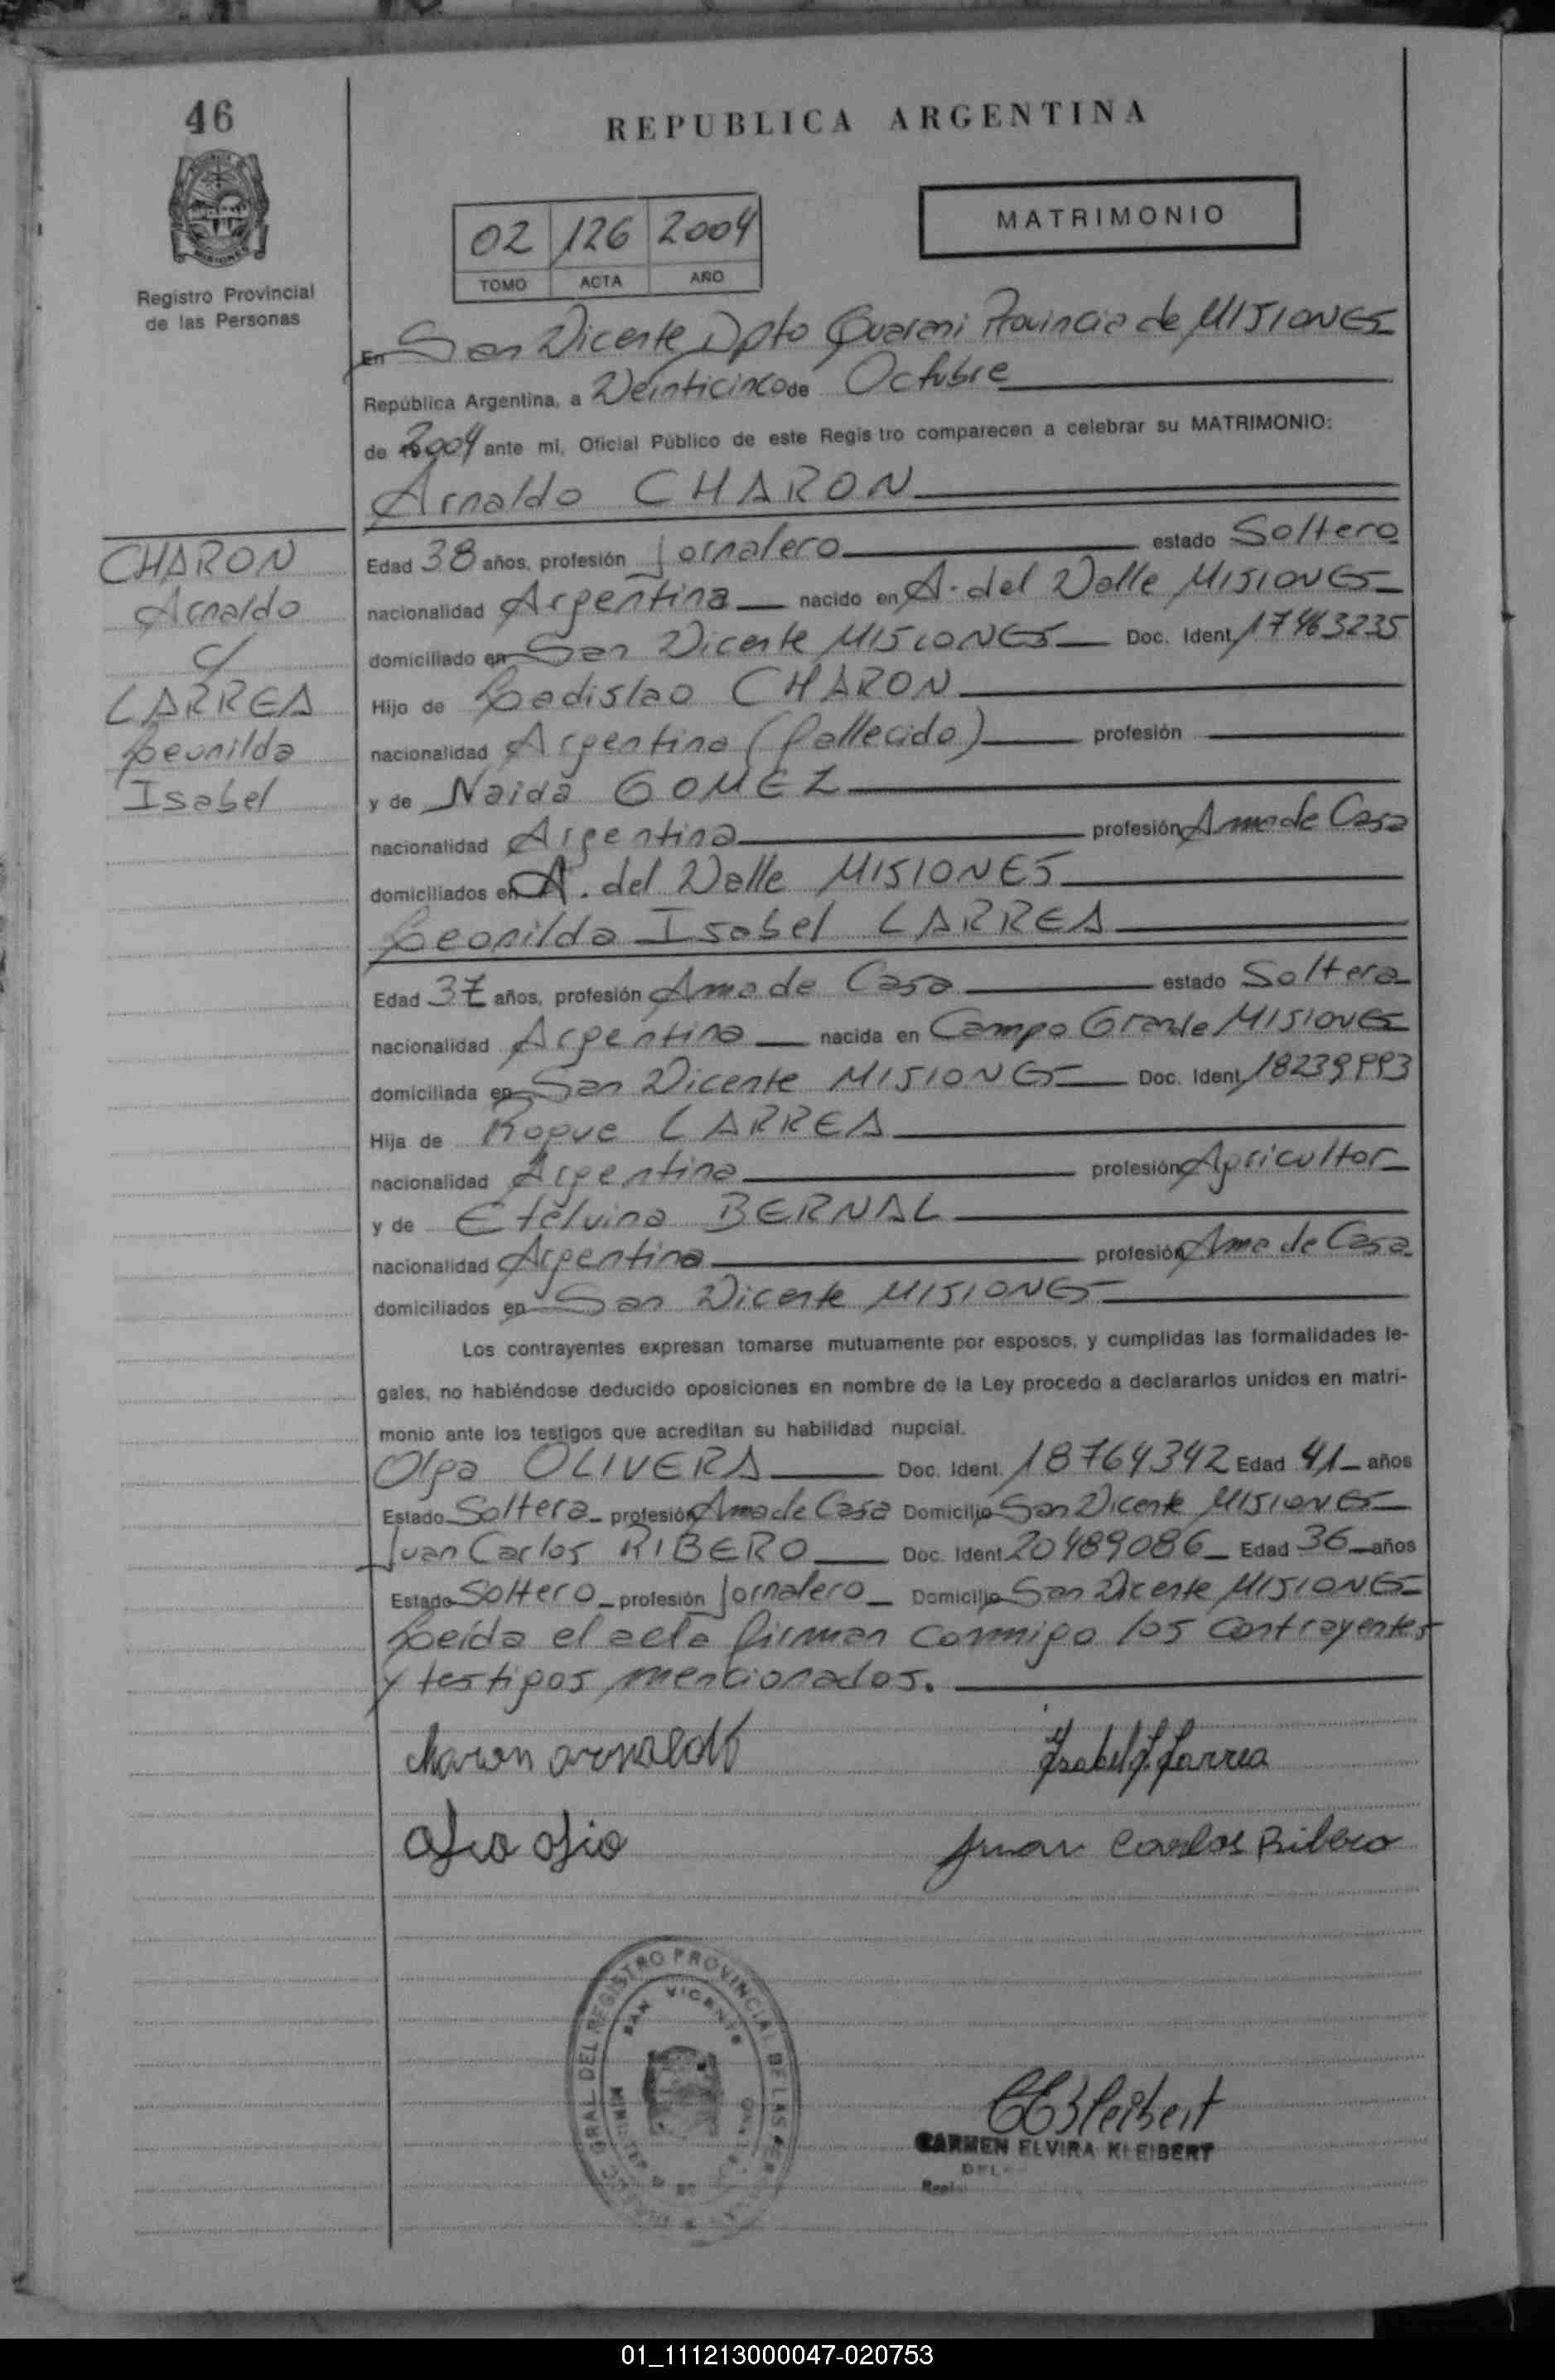 46
REPUBLICA ARGENTINA
MISIONES
Registro Provincial
de las Personas
02 126 2004
TOMO ACTA AÑO
MATRIMONIO
En San Vicente Dpto Guarani Provincia de MISIONES
República Argentina, a Veinticinco de Octubre
de 2004 ante mi, Oficial Público de este Registro comparecen a celebrar su MATRIMONIO:
Arnaldo CHARON
CHARON
Arnaldo
c/
LARREA
Leonilda
Isabel
Edad 38 años, profesión Jornalero estado Soltero
nacionalidad Argentina nacido en A. del Valle MISIONES
domiciliado en San Vicente MISIONES Doc. Ident. 17463235
Hijo de Ladislao CHARON
nacionalidad Argentina (fallecido) profesión
y de Naida GOMEZ
nacionalidad Argentina profesión Ama de Casa
domiciliados en A. del Valle MISIONES
Leonilda Isabel LARREA
Edad 37 años, profesión Ama de Casa estado Soltera
nacionalidad Argentina nacida en Campo Grande MISIONES
domiciliada en San Vicente MISIONES Doc. Ident. 18239993
Hija de Roque LARREA
nacionalidad Argentina profesión Agricultor
y de Etelvina BERNAL
nacionalidad Argentina profesión Ama de Casa
domiciliados en San Vicente MISIONES
Los contrayentes expresan tomarse mutuamente por esposos, y cumplidas las formalidades le-
gales, no habiéndose deducido oposiciones en nombre de la Ley procedo a declararlos unidos en matri-
monio ante los testigos que acreditan su habilidad nupcial.
Olga OLIVERA Doc. Ident. 18764342 Edad 41 años
Estado Soltera profesión Ama de Casa Domicilio San Vicente MISIONES
Juan Carlos RIBERO Doc. Ident. 20489086 Edad 36 años
Estado Soltero profesión Jornalero Domicilio San Vicente MISIONES
Leída el acta firman conmigo los contrayentes
y testigos mencionados.
charon arnaldo Isabel L. Larrea
Juan Carlos Ribero
GRAL. DEL REGISTRO PROVINCIAL DE LAS
SAN VICENTE
CARMEN ELVIRA KLEIBERT
01_111213000047-020753